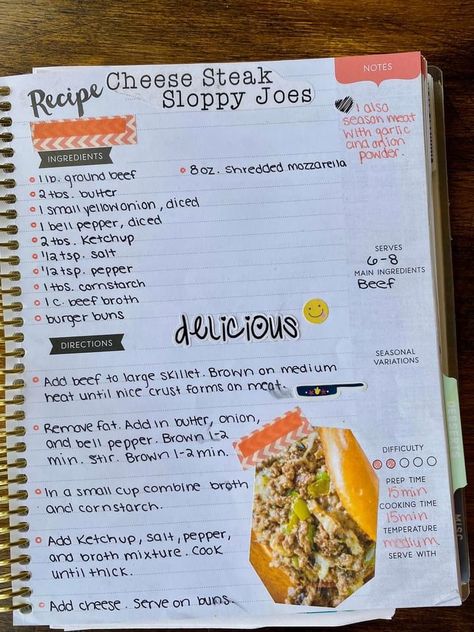 Recipe Cheese Steak
Sloppy Joes
NOTES
I also
season meat
with garlic
and onion
powder.
INGREDIENTS
1 lb. ground beef
8 oz. shredded mozzarella
2 tbs. butter
1 small yellow onion, diced
1 bell pepper, diced
2 tbs. Ketchup
1/2 tsp. salt
1/2 tsp. pepper
1 tbs. cornstarch
1 c. beef broth
burger buns
SERVES
6-8
MAIN INGREDIENTS
Beef
delicious
DIRECTIONS
SEASONAL
VARIATIONS
Add beef to large skillet. Brown on medium
heat until nice crust forms on meat.
Remove fat. Add in butter, onion,
and bell pepper. Brown 1-2
min. Stir. Brown 1-2 min.
In a small cup combine broth
and cornstarch.
Add Ketchup, salt, pepper,
and broth mixture. Cook
until thick.
Add cheese. Serve on buns.
DIFFICULTY
PREP TIME
15min
COOKING TIME
15min
TEMPERATURE
medium
SERVE WITH
MISC